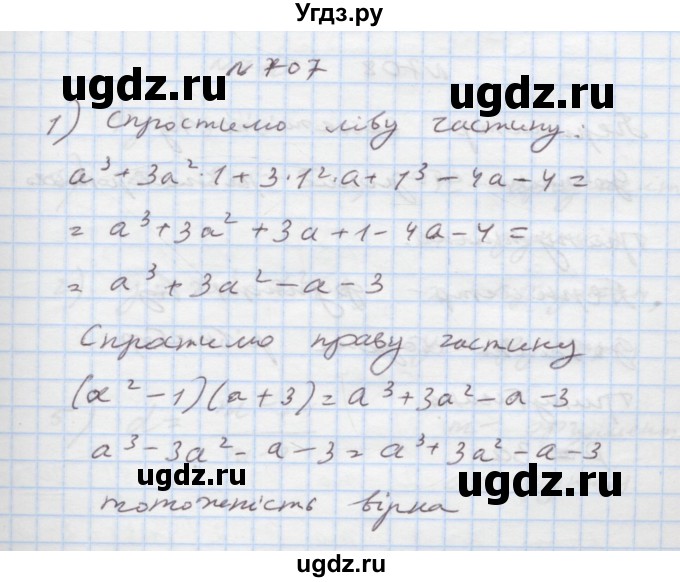 Угдз.ру
ugdz.ru
ugdz.ru
№ 707
1) Спростимо ліву частину:
a³+3a²·1+3·1²·a+1³-4a-4=
= a³+3a²+3a+1-4a-4=
ugdz.ru
ugdz.ru
= a³+3a²-a-3
Спростимо праву частину
(a²-1)(a+3)=a³+3a²-a-3
a³-3a²-a-3=a³+3a²-a-3
ugdz.ru
ugdz.ru
тотожність вірна
ugdz.ru